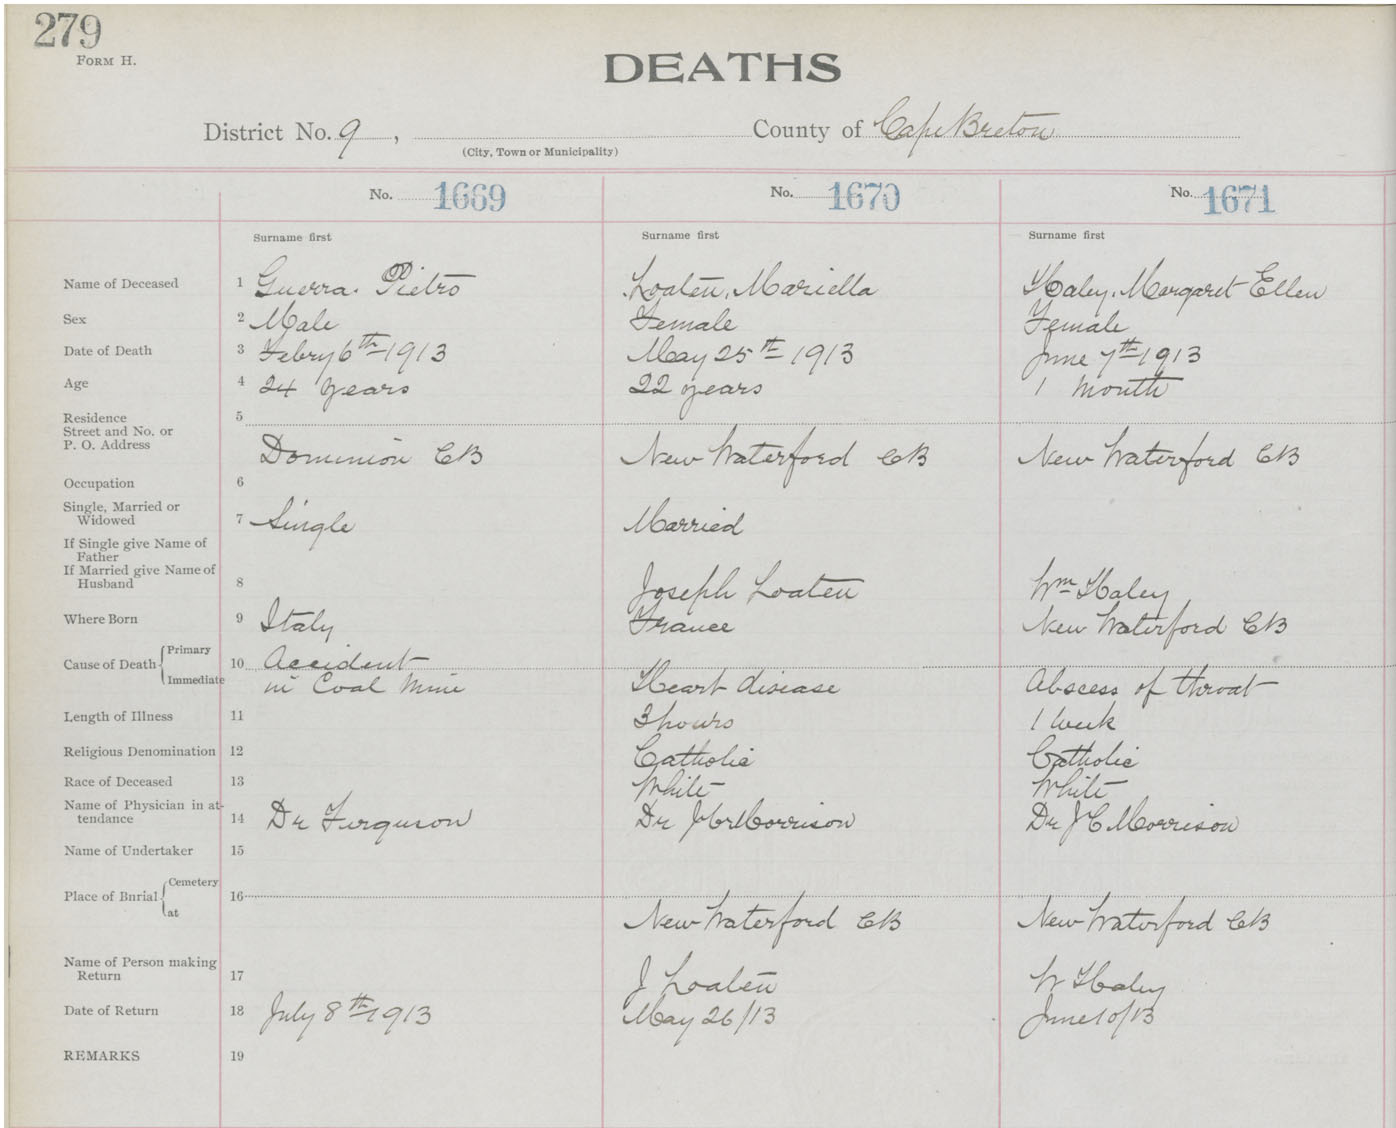 279
FORM H.
DEATHS
District No. 9, County of Cape Breton
(City, Town or Municipality)
No. 1669 No. 1670 No. 1671
Surname first Surname first Surname first
Name of Deceased 1 Guerra. Pietro Loaten, Mariella Haley, Margaret Ellen
Sex 2 Male Female Female
Date of Death 3 Febry 6th 1913 May 25th 1913 June 7th 1913
Age 4 24 years 22 years 1 month
Residence 5
Street and No. or
P. O. Address Dominion CB New Waterford CB New Waterford CB
Occupation 6
Single, Married or
Widowed 7 Single Married
If Single give Name of
Father
If Married give Name of
Husband 8 Joseph Loaten Wm Haley
Where Born 9 Italy France New Waterford CB
Cause of Death { Primary 10 Accident
Immediate in Coal Mine Heart disease Abscess of throat
Length of Illness 11 3 hours 1 week
Religious Denomination 12 Catholic Catholic
Race of Deceased 13 White White
Name of Physician in at-
tendance 14 Dr Ferguson Dr Morrison Dr J C Morrison
Name of Undertaker 15
Place of Burial { Cemetery 16
at New Waterford CB New Waterford CB
Name of Person making
Return 17 J Loaten W Haley
Date of Return 18 July 8th 1913 May 26/13 June 10/13
REMARKS 19